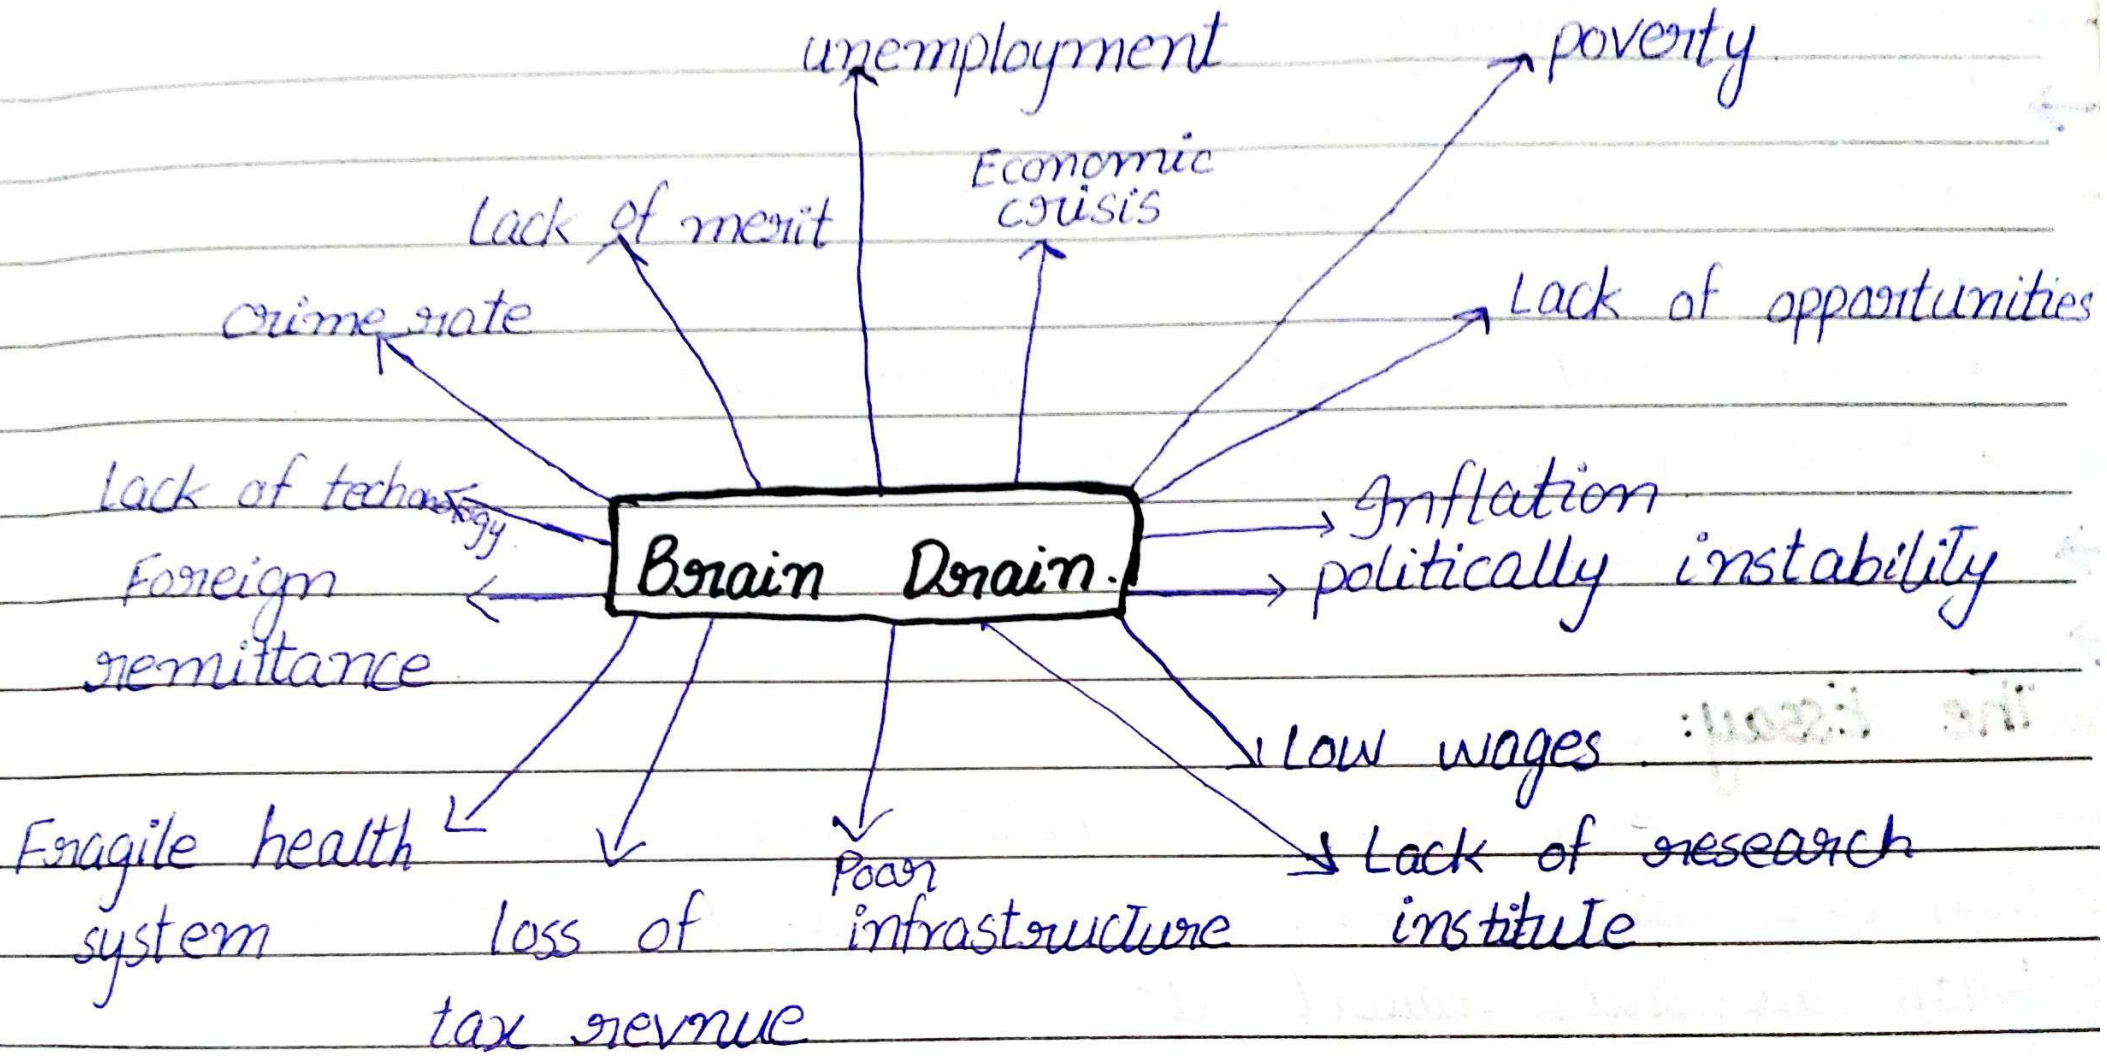 unemployment
poverty
Economic
crisis
Lack of merit
crime rate
Lack of opportunities
Lack of techonology
Inflation
Brain Drain.
politically instability
Foreign
remittance
The Essay:
Low wages
Fragile health
system
loss of
tax revnue
Poor
infrastructure
Lack of research
institute